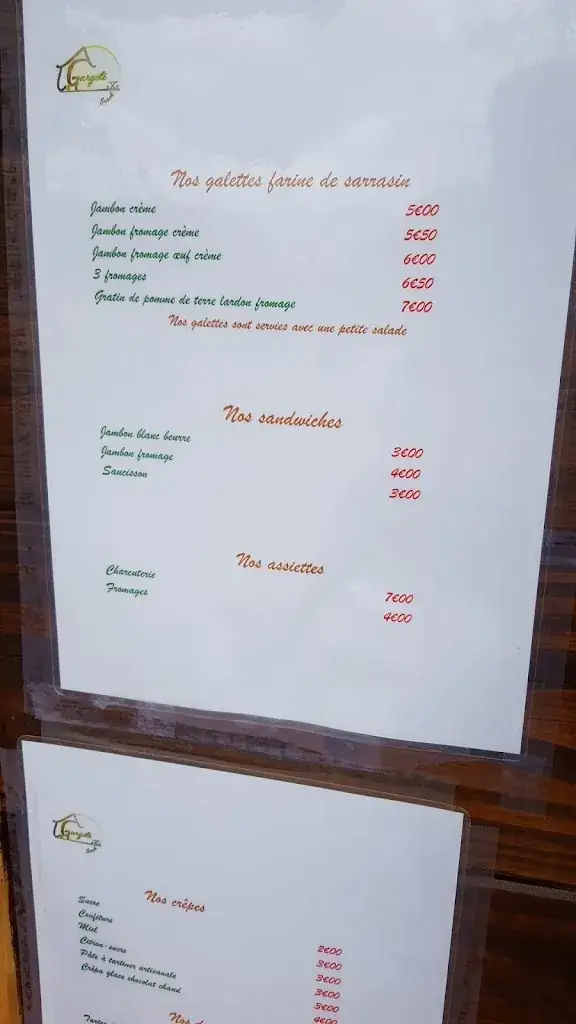 Gargote
Nos galettes farine de sarrasin
Jambon crème 5€00
Jambon fromage crème 5€50
Jambon fromage œuf crème 6€00
3 fromages 6€50
Gratin de pomme de terre lardon fromage 7€00
Nos galettes sont servies avec une petite salade
Nos sandwiches
Jambon blanc beurre 3€00
Jambon fromage 4€00
Saucisson 3€00
Nos assiettes
Charcuterie 7€00
Fromages 4€00
Gargote
Nos crêpes
Sucre 2€00
Confiture 3€00
Miel 3€00
Citron-sucre 3€00
Pâte à tartiner artisanale 3€00
Crêpa glace chocolat chaud 4€00
Nos